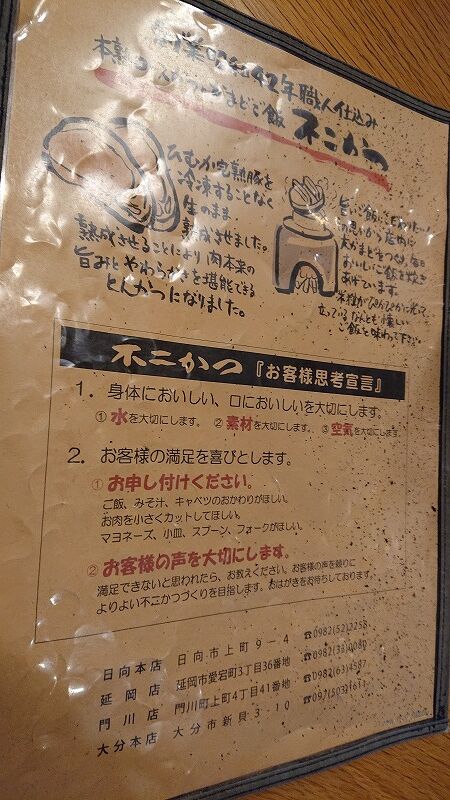 創業昭和42年職人仕込み
本熟成とんかつ かまどご飯 不二かつ
ひむか完熟豚を
冷凍することなく
生のまま
熟成させました。
熟成させることにより肉本来の
旨みとやわらかさを堪能できる
とんかつになりました。
旨いご飯にこだわりたい
の思いから店内に
大かまどをつくり、毎日
おいしいご飯を炊き
あげています。
米粒がぴかぴかに光って
立っているなんとも懐しい
ご飯を味わって下さい。
不二かつ『お客様思考宣言』
1. 身体においしい、口においしいを大切にします。
① 水を大切にします。 ② 素材を大切にします。 ③ 空気を大切にします。
2. お客様の満足を喜びとします。
① お申し付けください。
ご飯、みそ汁、キャベツのおかわりがほしい。
お肉を小さくカットしてほしい。
マヨネーズ、小皿、スプーン、フォークがほしい。
② お客様の声を大切にします。
満足できないと思われたら、お教えください。お客様の声を頼りに
よりよい不二かつづくりを目指します。おはがきをお待ちしております。
日向本店 日向市上町9-4 ☎0982(52)2258
延岡店 延岡市愛宕町3丁目36番地 ☎0982(33)0080
門川店 門川町上町4丁目41番地 ☎0982(63)4587
大分本店 大分市新貝3-10 ☎097(503)1611